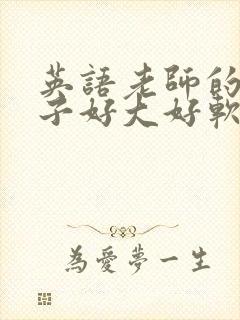 英語老師的
子好大好軟
為愛夢一生